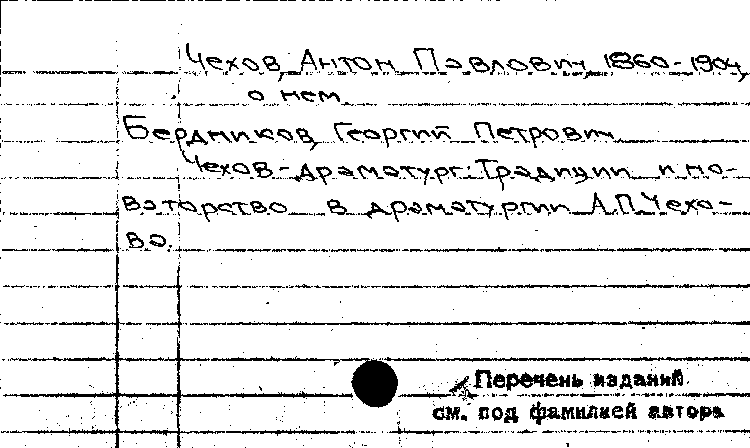 Чехов, Антон Павлович, 1860-1904,
о нем.
Бердников, Георгий Петрович.
Чехов-драматург: Традиции и но-
ваторство в драматургии А.П.Чехо-
ва.
Перечень изданий
см. под фамилией автора